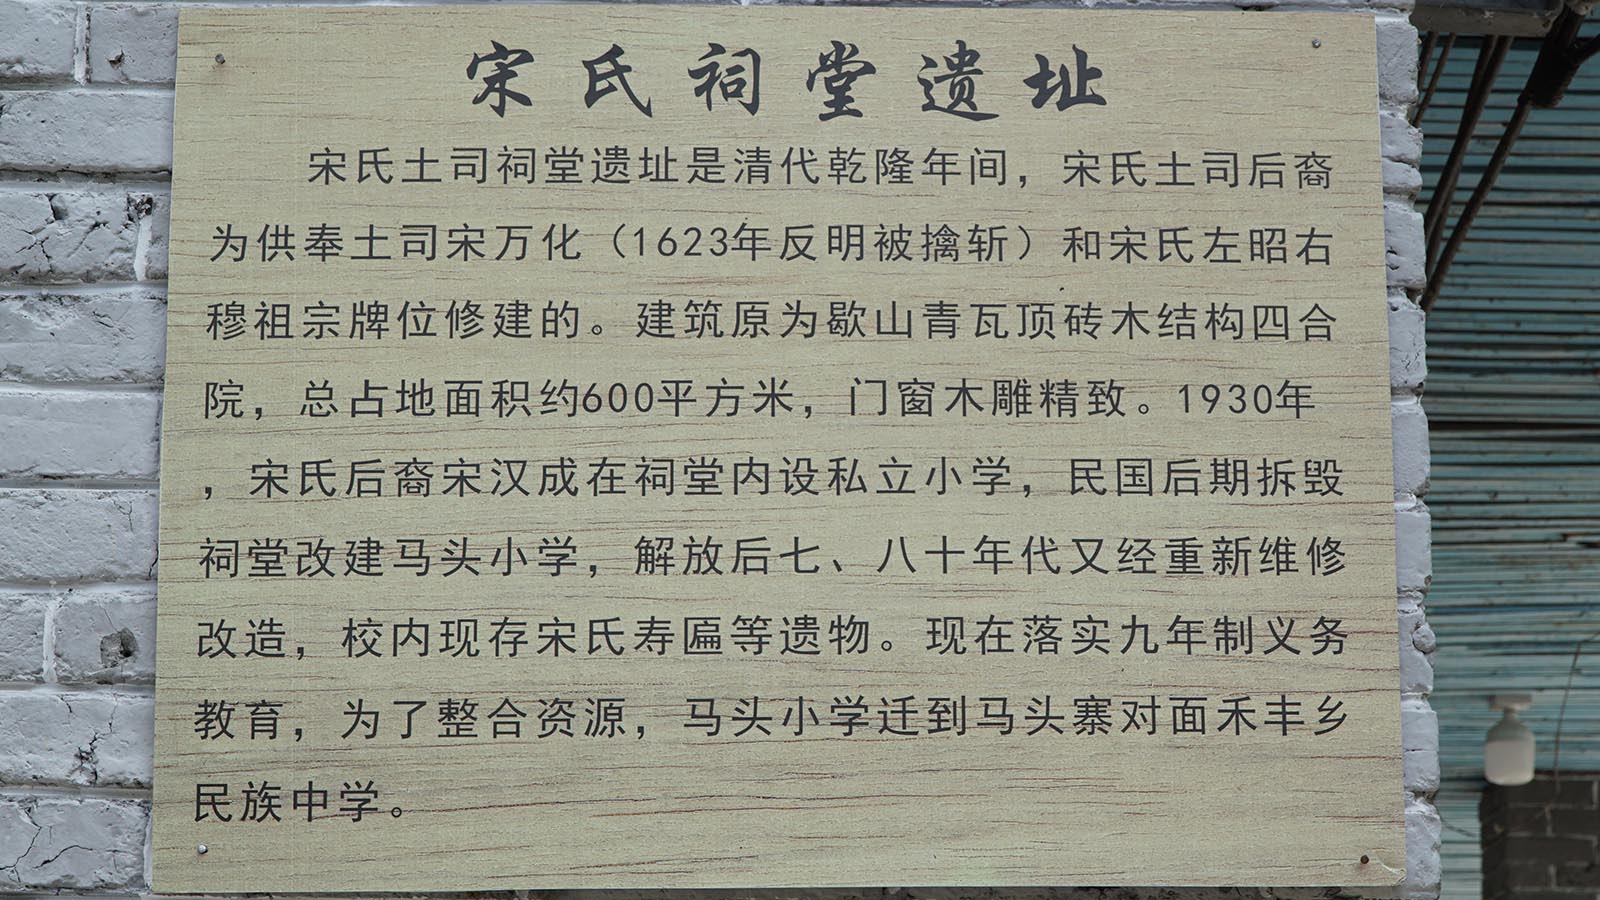 宋氏祠堂遗址
宋氏土司祠堂遗址是清代乾隆年间，宋氏土司后裔
为供奉土司宋万化（1623年反明被擒斩）和宋氏左昭右
穆祖宗牌位修建的。建筑原为歇山青瓦顶砖木结构四合
院，总占地面积约600平方米，门窗木雕精致。1930年
，宋氏后裔宋汉成在祠堂内设私立小学，民国后期拆毁
祠堂改建马头小学，解放后七、八十年代又经重新维修
改造，校内现存宋氏寿匾等遗物。现在落实九年制义务
教育，为了整合资源，马头小学迁到马头寨对面禾丰乡
民族中学。